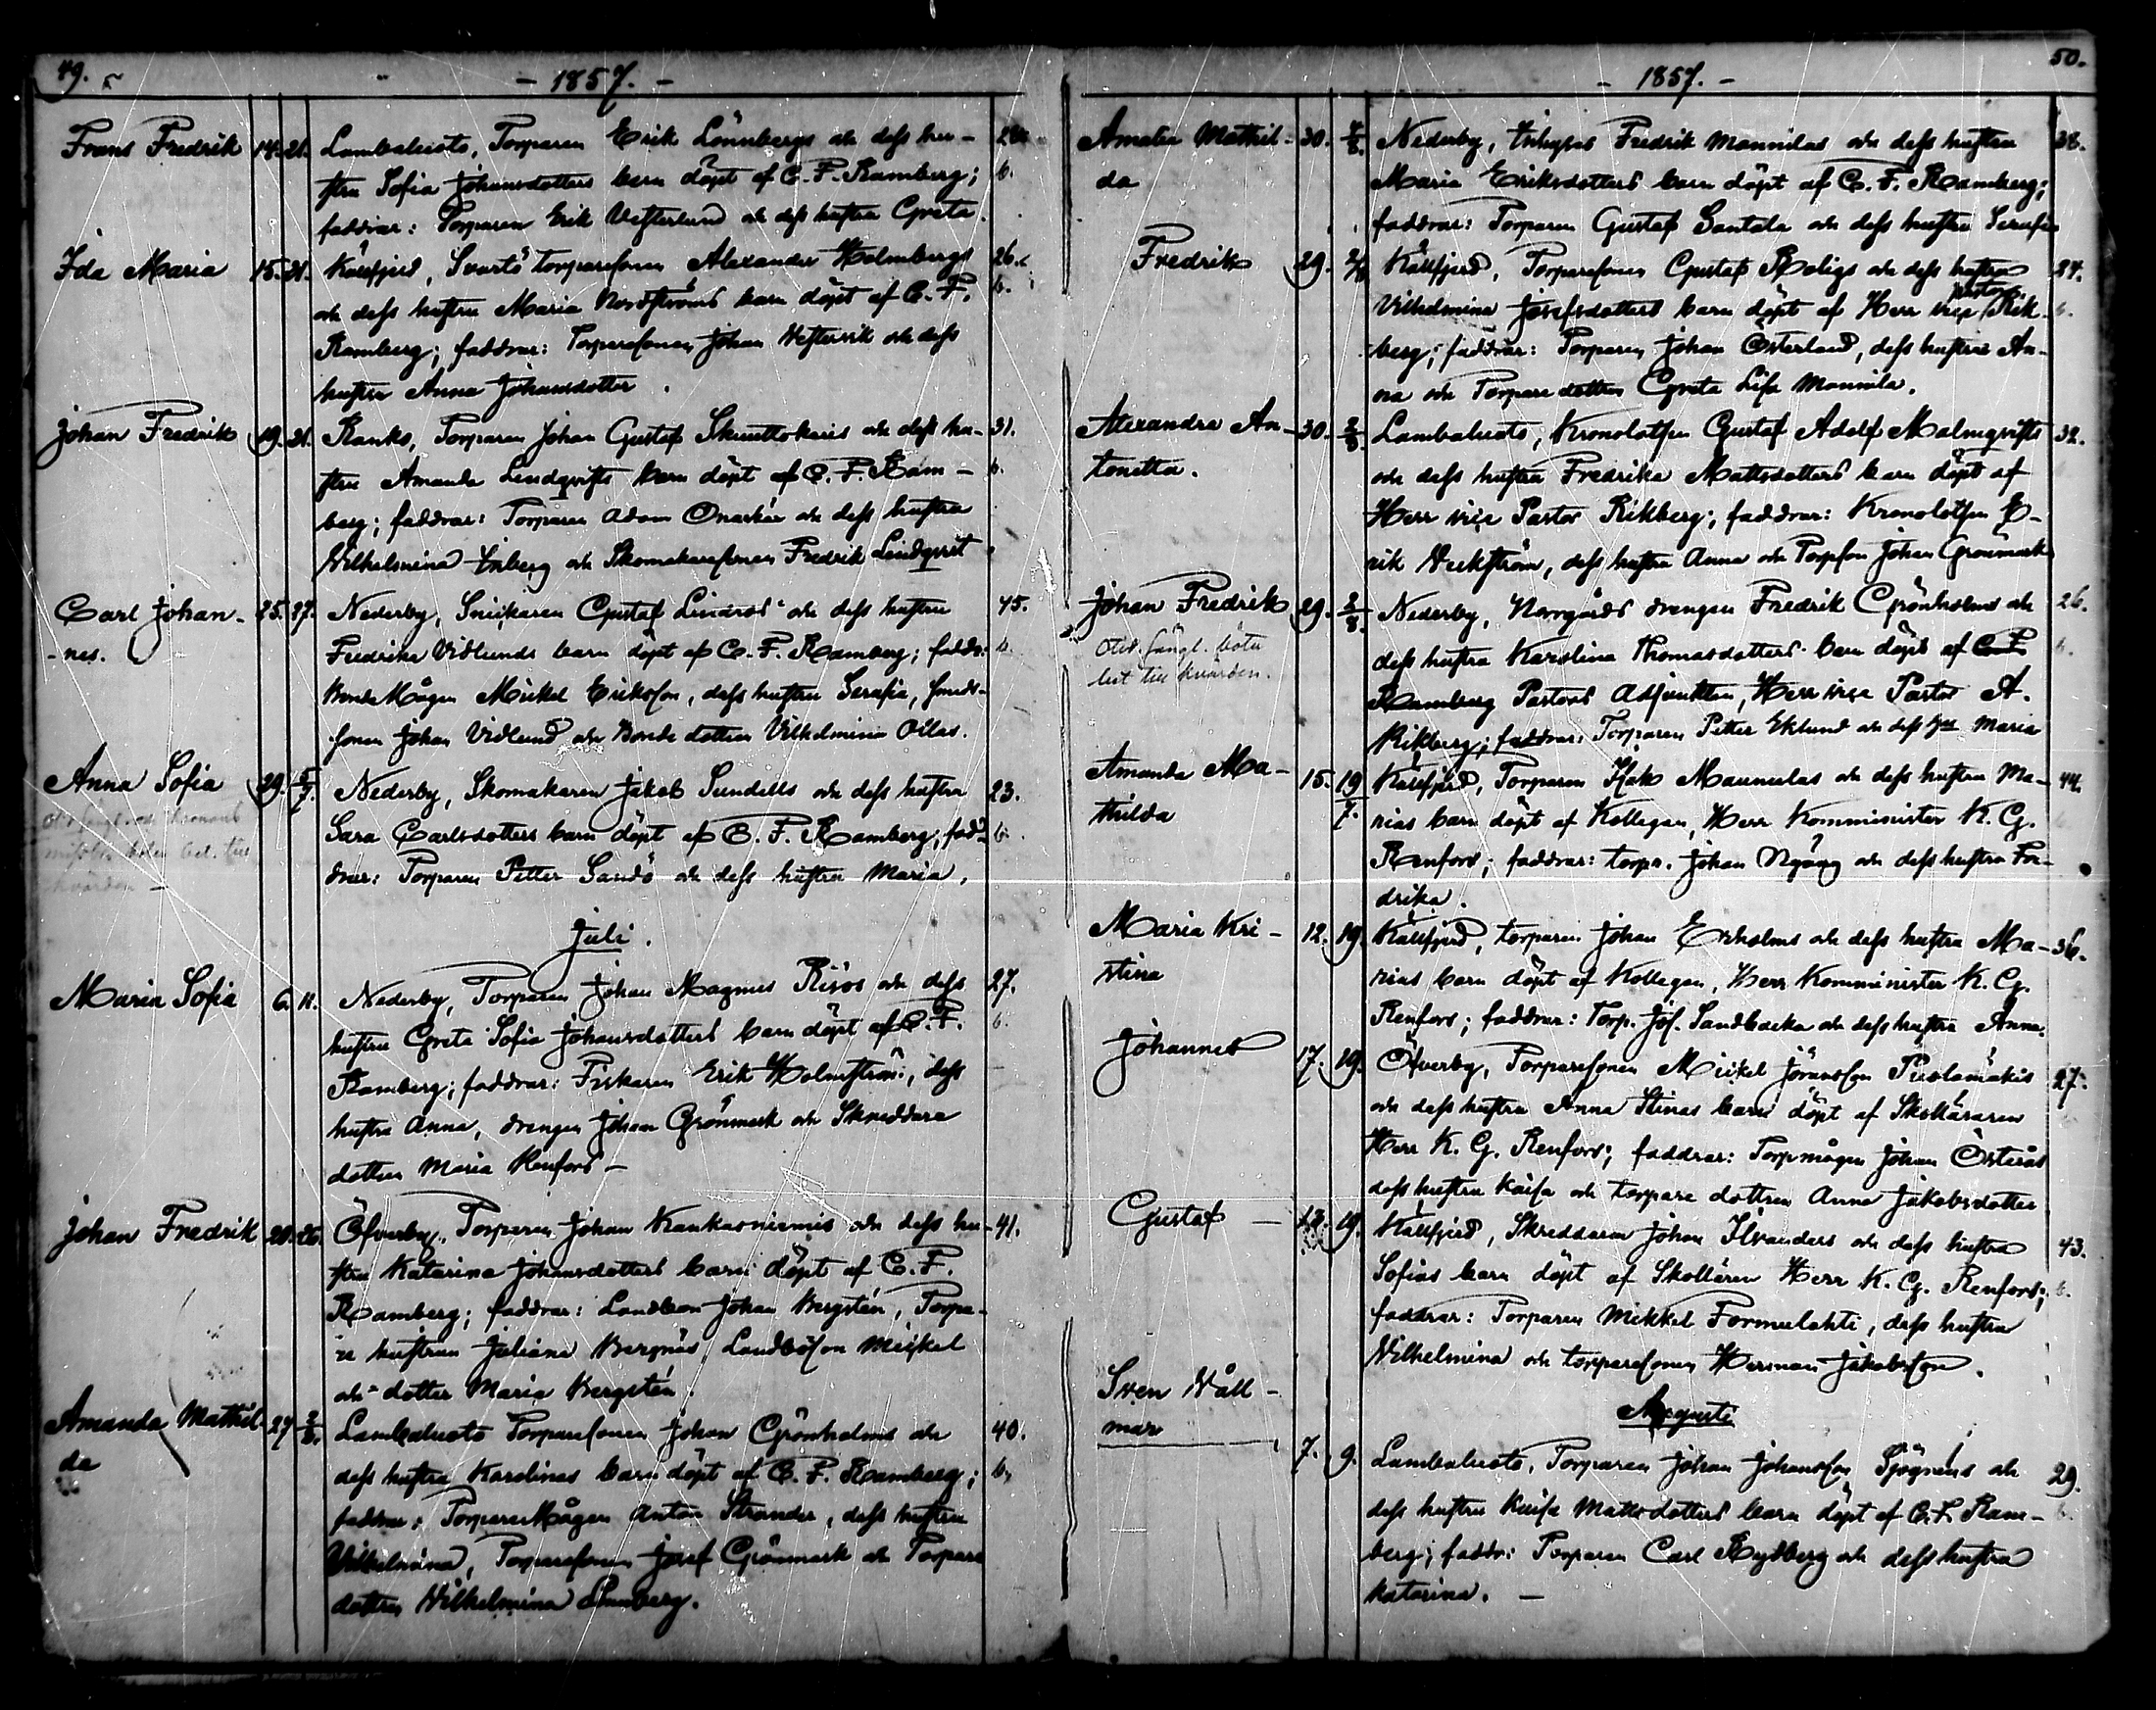 49.
- 1857. -
Frans Fredrik 14. 21. Lambaluoto, Torparen Erik Lönnbergs och dess hu-
stru Sofia Johansdotters barn döpt af C. F. Ramberg; 6.
faddrar: Torparen Erik Vesterlund och dess hustru Greta.
Ida Maria 15. 21. Kållfjerd, Svartö torparesonen Alexander Holmbergs 26.
och dess hustru Maria Nordströms barn döpt af C. F. 6.
Ramberg; faddrar: Torparesonen Johan Vestervik och dess
hustru Anna Johansdotter.
Johan Fredrik 19. 21. Ranko, Torparen Johan Gustaf och dess hu- 31.
stru Amanda Lindqvists barn döpt af C. F. Ram- 6.
berg; faddrar: Torparen Adam och dess hustru
Vilhelmina och Skomakaresonen Fredrik Lindqvist
Carl Johan- 25. 27. Nederby, Snickaren Gustaf Lindros och dess hustru 45.
-nes. Fredrika Vidlunds barn döpt af C. F. Ramberg; faddr: 6.
Bonde Mågen Mickel Eriksson, dess hustru Serafia,
sonen Johan Vidlund och Bonde dottren Vilhelmina Oilas.
Anna Sofia 29. 5/7. Nederby, Skomakaren Jakob Sundells och dess hustru 23.
Sara Carlsdotters barn döpt af C. F. Ramberg, fad- 6.
drar: Torparen Petter Sandö och dess hustru Maria.
Juli.
Maria Sofia 6. 11. Nederby, Torparen Johan Magnus Risös och dess 27.
hustru Greta Sofia Johansdotters barn döpt af C. F. 6.
Ramberg; faddrar: Fiskaren Erik Holmström, dess
hustru Anna, drengen Johan Grönmark och Skreddare
dottren Maria Renfors -
Johan Fredrik 20. 26. Öfverby, Torparen Johan Kankaoniemis och dess hu- 41.
stru Katarina Johansdotters barn döpt af C. F.
Ramberg; faddrar: Landbon Johan Bergstén, Torpa-
re hustrun Juliana Bergnäs, Landbosson Mickel
och dotter Maria Bergstén.
Amanda Mathil- 27. 2/8. Lambaluoto Torparesonen Johan Grönholms och 40.
da dess hustru Karolinas barn döpt af C. F. Ramberg; 6.
faddrar: TorpareMågen Anton Strander, dess hustru
Vilhelmina, Torparesonen Josef Grönmark och Torpare
dottren Vilhelmina
50.
- 1857. -
Amalia Mathil- 30. 2/8. Nederby, Inhyses Fredrik Mannilas och dess hustru 38.
da Maria Eriksdotters barn döpt af C. F. Ramberg;
faddrar: Torparen Gustaf Santala och dess hustru Serafia
Fredrik 29. 2/8 Kållfjerd, Torparesonen Gustaf Roligs och dess hustru 24.
Vilhelmina Josefsdotters barn döpt af Herr vice pastor Rik- 6.
berg; faddrar: Torparen Johan Österland, dess hustru An-
na och Torpare dottren Greta Lisa Mannila.
Alexandra An- 30. 2/8. Lambaluoto, Kronolotsen Gustaf Adolf Malmqvists 32.
tonetta. och dess hustru Fredrika Mattsdotters barn döpt af
Herr vice Pastor Rikberg; faddrar: Kronolotsen E-
rik Veckström, dess hustru Anna och Torpson Johan Grönmark
Johan Fredrik 29. 2/8. Nederby, Norrgårds drengen Fredrik Grönholms och 26.
dess hustru Karolina Thomasdotters barn döpt af C. F. 6.
Ramberg Pastors Adjunkten, Herr vice Pastor A.
Rikberg; faddrar: Torparen Petter Eklund och dess hu Maria
Amanda Ma- 15. 19/7. Kållfjerd, Torparen Isak Maunulas och dess hustru Ma- 44.
thilda rias barn döpt af Kollegan, Herr Komminister K. G.
Renfors; faddrar: torpr. Johan Nygång och dess hustru Fre-
drika.
Maria Kri- 12. 19. Kållfjerd, torparen Johan Ekholms och dess hustru Ma- 36.
stina rias barn döpt af Kollegan, Herr Komminister K. G.
Renfors; faddrar: Torp. Jos. Sandbacka och dess hustru Anna.
Johannes 17. 19. Öfverby, Torparesonen Mickel Jöransson Puolamäkis 27.
och dess hustru Anna Stinas barn döpt af Skolläraren
Herr K. G. Renfors; faddrar: Torpmågen Johan Österås
dess hustru Kaisa och torpare dottren Anna Jakobsdotter
Gustaf - 12. 19. Kållfjerd, Skreddaren Johan Ilvanders och dess hustru 43.
Sofias barn döpt af Skollären Herr K. G. Renfors; 6.
faddrar: Torparen Mikkel Formulahti, dess hustru
Vilhelmina och torparesonen Herman Jakobsson.
Augusti
Sven Wall-
mar 7. 9. Lambaluoto, Torparen Johan Johansson Sjögréns och 29.
dess hustru Kaisa Mattsdotters barn döpt af C. F. Ram- 6.
berg; faddr: Torparen Carl Rydberg och dess hustru
Katarina. -